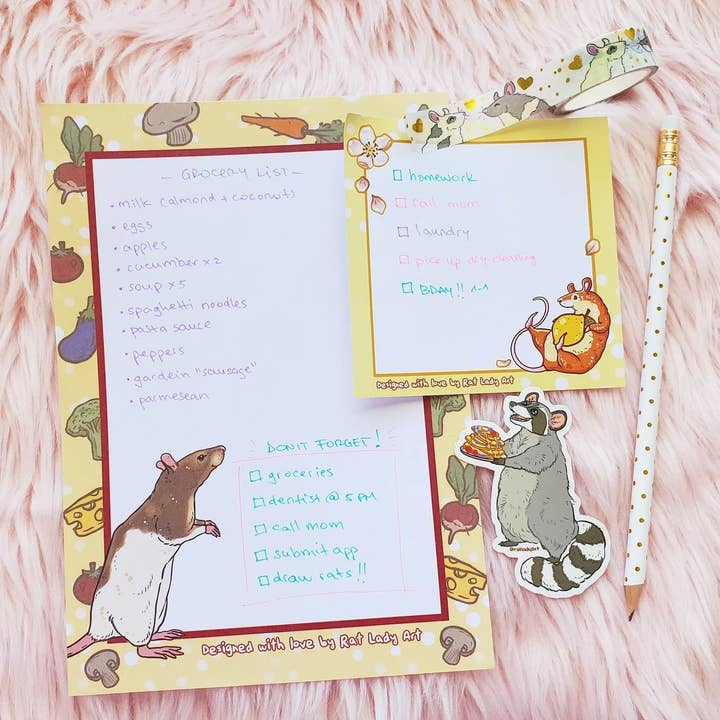 - GROCERY LIST -
• milk (almond + coconut)
• eggs
• apples
• cucumber x2
• soup x5
• spaghetti noodles
• pasta sauce
• peppers
• gardein "sausage"
• parmesean
DON'T FORGET!
groceries
dentist @ 5 PM
call mom
submit app
draw rats!!
Designed with love by Rat Lady Art
homework
call mom
laundry
pick up dry cleaning
BDAY!! 1-1
Designed with love by Rat Lady Art
@ratladyart